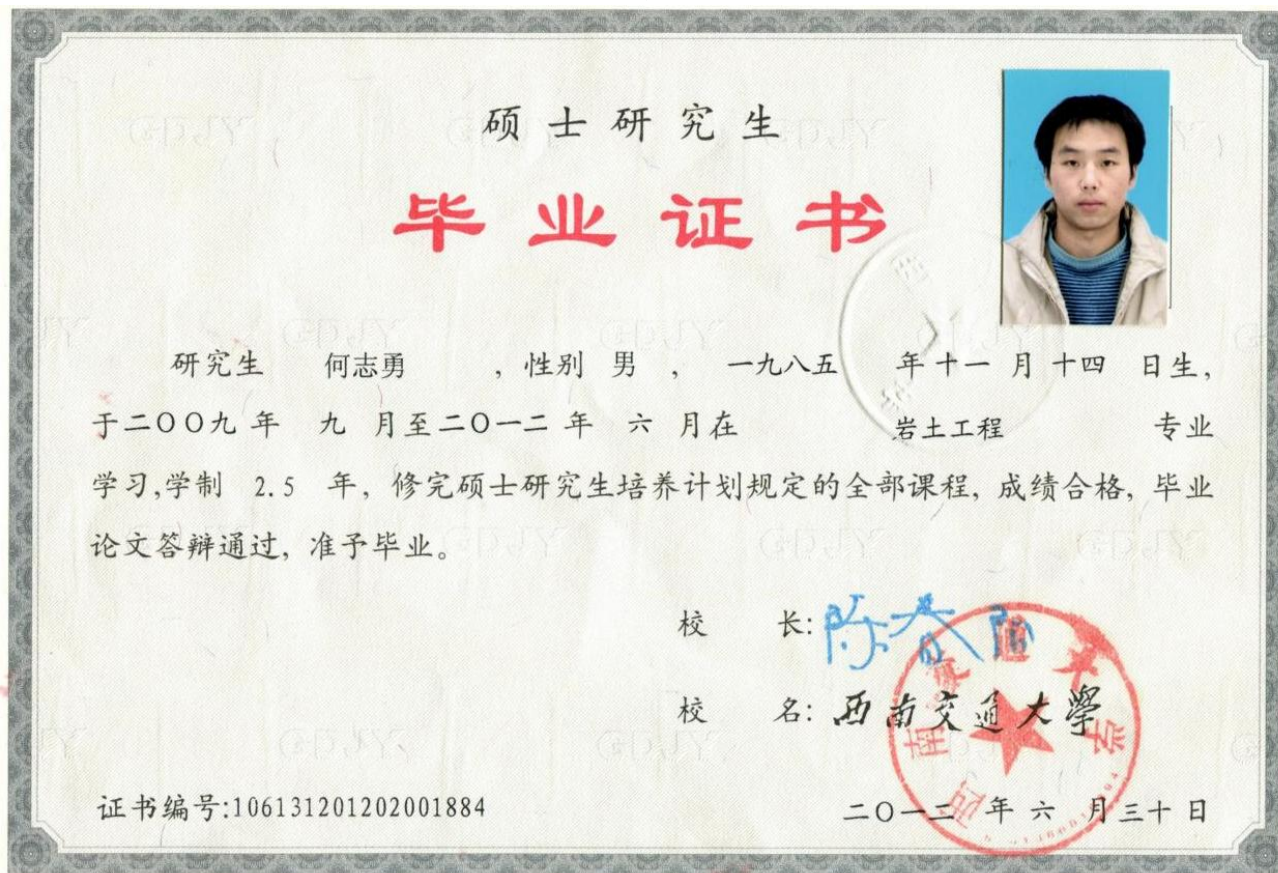 硕士研究生
毕业证书
研究生 何志勇 , 性别 男 , 一九八五 年十一 月十四 日生,
于二〇〇九年 九 月至二〇一二年 六 月在 岩土工程 专业
学习,学制 2.5 年, 修完硕士研究生培养计划规定的全部课程, 成绩合格, 毕业
论文答辩通过, 准予毕业。
校 长:
校 名: 西南交通大學
西南交通大学
证书编号:106131201202001884
二〇一二 年 六 月三十日